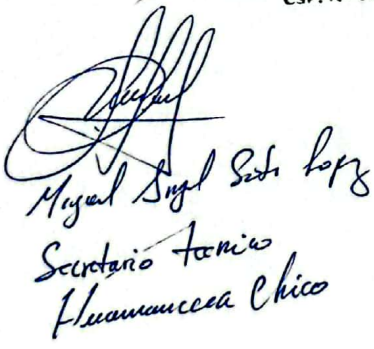 Miguel Angel Soto Lopez
Secretario Tecnico
Huamancaca Chico